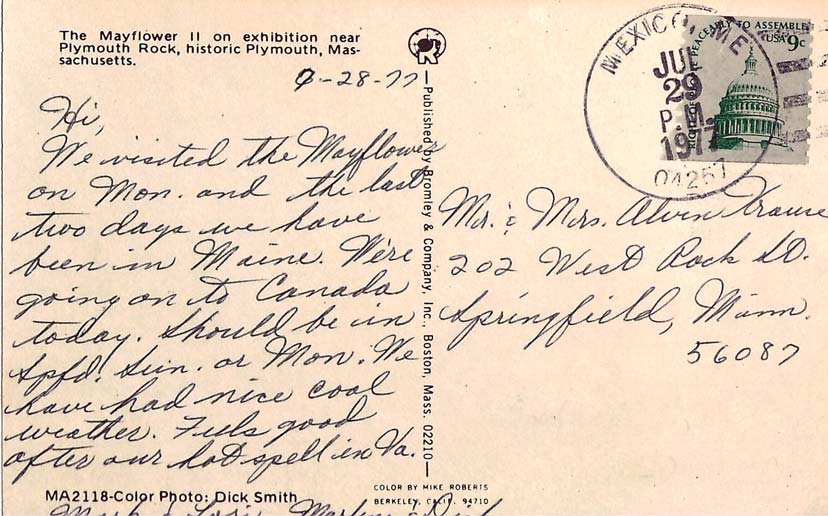 The Mayflower II on exhibition near
Plymouth Rock, historic Plymouth, Mas-
sachusetts.
7-28-77
Hi,
We visited the Mayflower
on Mon. and the last
two days we have
been in Maine. We're
going on to Canada
today. Should be in
Spfd. Sun. or Mon. We
have had nice cool
weather. Feels good
after our hot spell in Va.
MA2118-Color Photo: Dick Smith
Published by Bromley & Company, Inc., Boston, Mass. 02210
COLOR BY MIKE ROBERTS
BERKELEY, CALIF. 94710
MEXICO, ME
JUL
29
P.M.
1977
04257
PEACEABLY TO ASSEMBLE
USA 9c
Mr. & Mrs. Alvin Krause
202 West Rock St.
Springfield, Minn.
56087